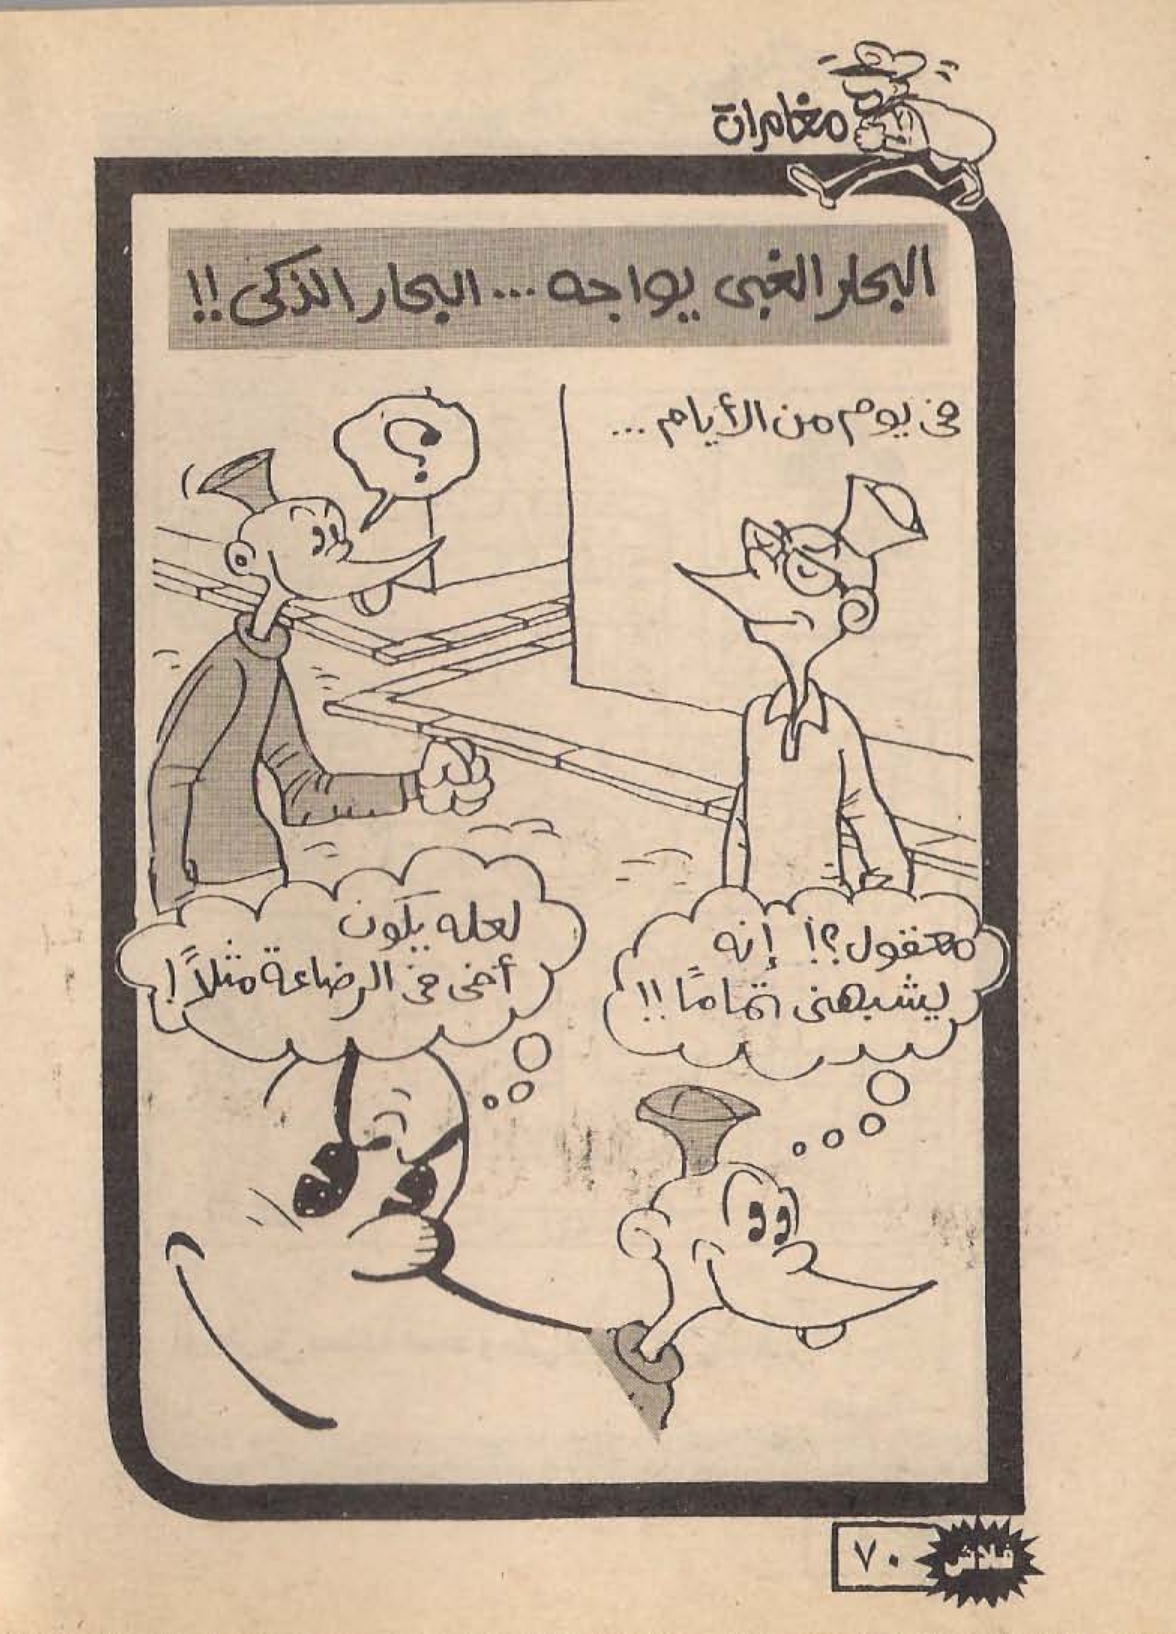 مغامرات
البحار الغبى يواجه ... البحار الذكى !!
فى يوم من الأيام ...
؟
معقول ؟! إنه
يشبهنى تمامًا !!
لعله يكون
أخى فى الرضاعة مثلاً !
فلاش
٧٠